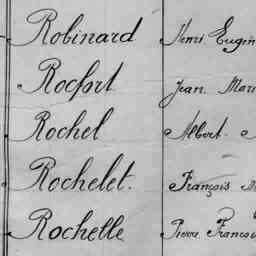 Robinard Henri Eugèn
Rocfort Jean Mari
Rochel Albert
Rochelet. François M
Rochelle Pierre Francois